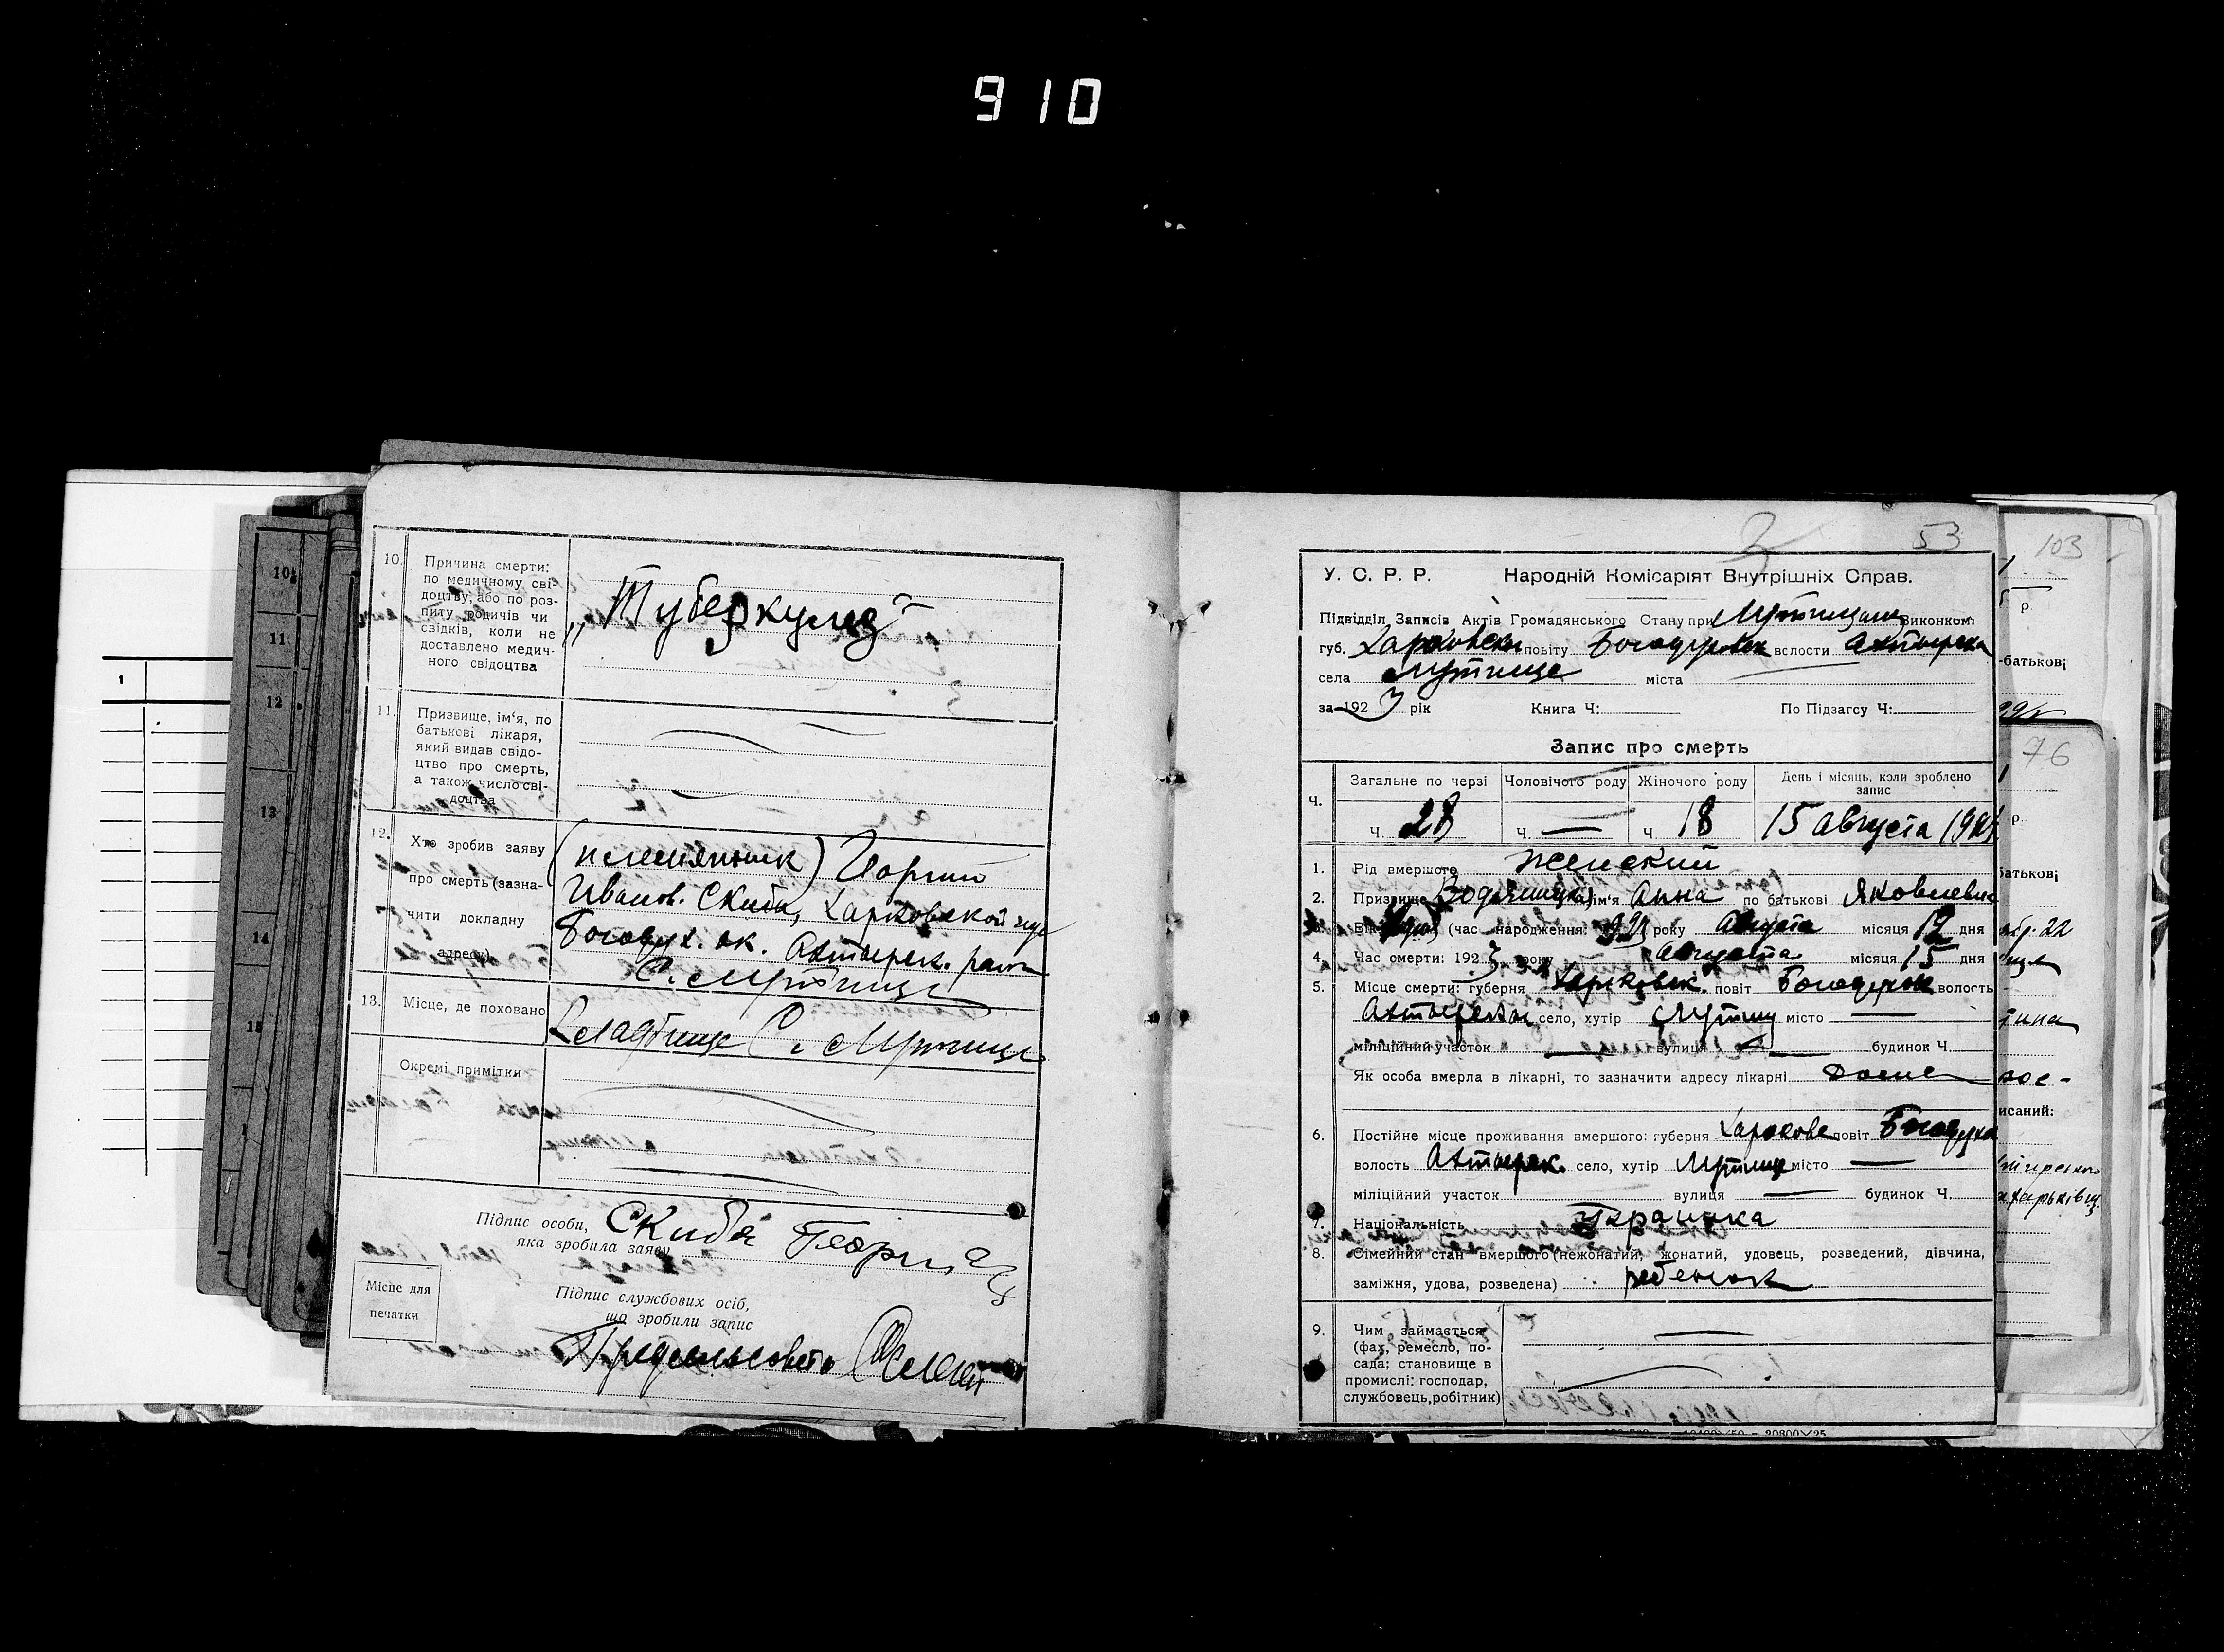 910
10.
Причина смерти:
по медичному сві-
доцтву, або по роз-
питу родичів чи
свідків, коли не
доставлено медич-
ного свідоцтва
„Туберкулез"
11.
Призвище, ім'я, по
батькові лікаря,
який видав свідо-
цтво про смерть,
а також число сві-
доцтва
12.
Хто зробив заяву
про смерть (зазна-
чити докладну
адресу)
(племянник)
Иванов. Скиба, Харьковской губ
Богодух. ок. Ахтырск. район
С. Мутница
13.
Місце, де поховано
Кладбище С. Мутница
Окремі примітки
Підпис особи,
яка зробила заяву
Скиба
Місце для
печатки
Підпис службових осіб,
що зробили запис
Предсельсовета
10
11
12
13
14
15
1
53
У. С. Р. Р. Народній Комісаріят Внутрішніх Справ.
Підвідділ Записів Актів Громадянського Стану при Виконком
губ. Харковской повіту Богодуховск вслости Ахтырска
села Мутнице міста
за 1923 рік Книга Ч: По Підзагсу Ч:
Запис про смерть
Ч. Загальне по черзі Чоловічого роду Жіночого роду День і місяць, коли зроблено
запис
Ч. 28 Ч. — Ч. 18 15 августа
1. Рід вмершого Женский
2. Призвище ім'я Анна по батькові Яковлевна
3. Вік (час народження: року Августа місяця дня
4. Час смерти: 1923 року Августа місяця 15 дня
5. Місце смерти: губерня Харковск. повіт Богодухов волость
Ахтырская село, хутір Мутниц місто —
міліційний участок — вулиця — будинок Ч.
Як особа вмерла в лікарні, то зазначити адресу лікарні Доме
6. Постійне місце проживання вмершого: губерня Харкове повіт Богодухо
волость Ахтырск. село, хутір Мутнице місто —
міліційний участок вулиця — будинок Ч.
7. Національність Украинка
8. Сімейний стан вмершого (нежонатий, жонатий, удовець, розведений, дівчина,
заміжня, удова, розведена) ребенок
9. Чим займається
(фах, ремесло, по-
сада; становище в
промислі: господар,
службовець, робітник)
103
р.
-батькові
76
р.
батькові
исаний: